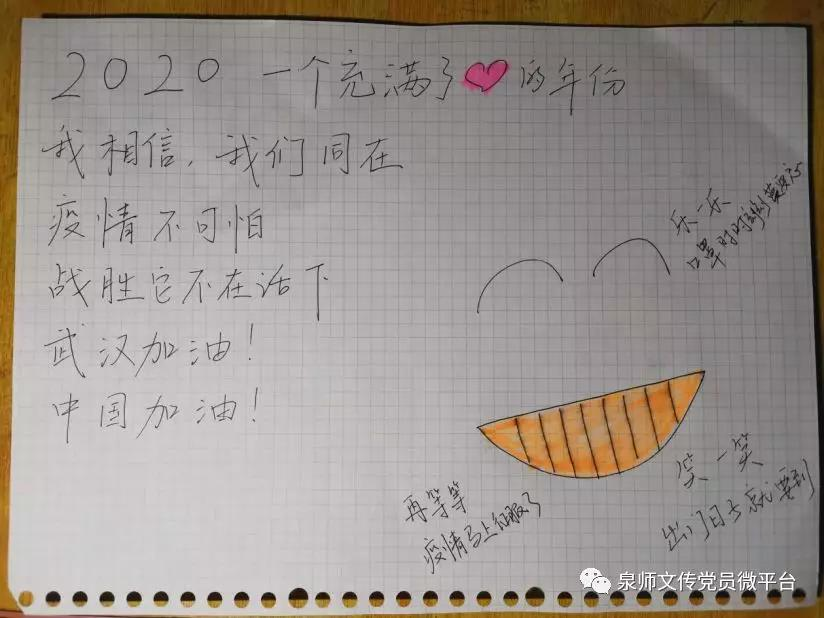 2020 一个充满了❤的年份
我相信,我们同在
疫情不可怕
战胜它不在话下
武汉加油!
中国加油!
乐一乐
口罩时时刻刻要戴
再等等
疫情马上征服了
笑一笑
出门日子就要到
泉师文传党员微平台